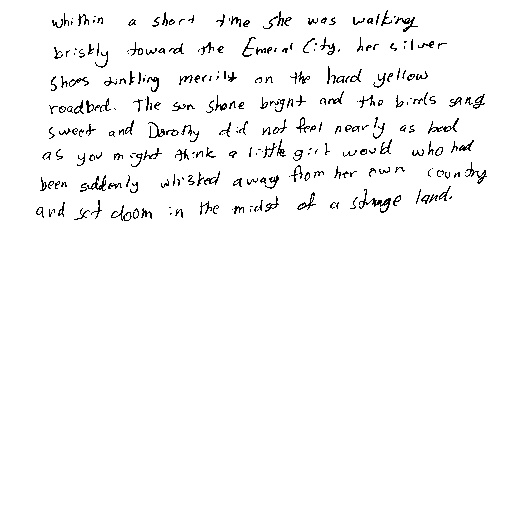 whithin a short time she was walking
briskly toward the Emeral City, her silver
shoes tinkling merrily on the hard yellow
roadbed. The sun shone bright and the birds sang
sweet and Dorothy did not feel nearly as bad
as you might think a little girl would who had
been suddenly whisked away from her own country
and set doom in the midst of a strage land.